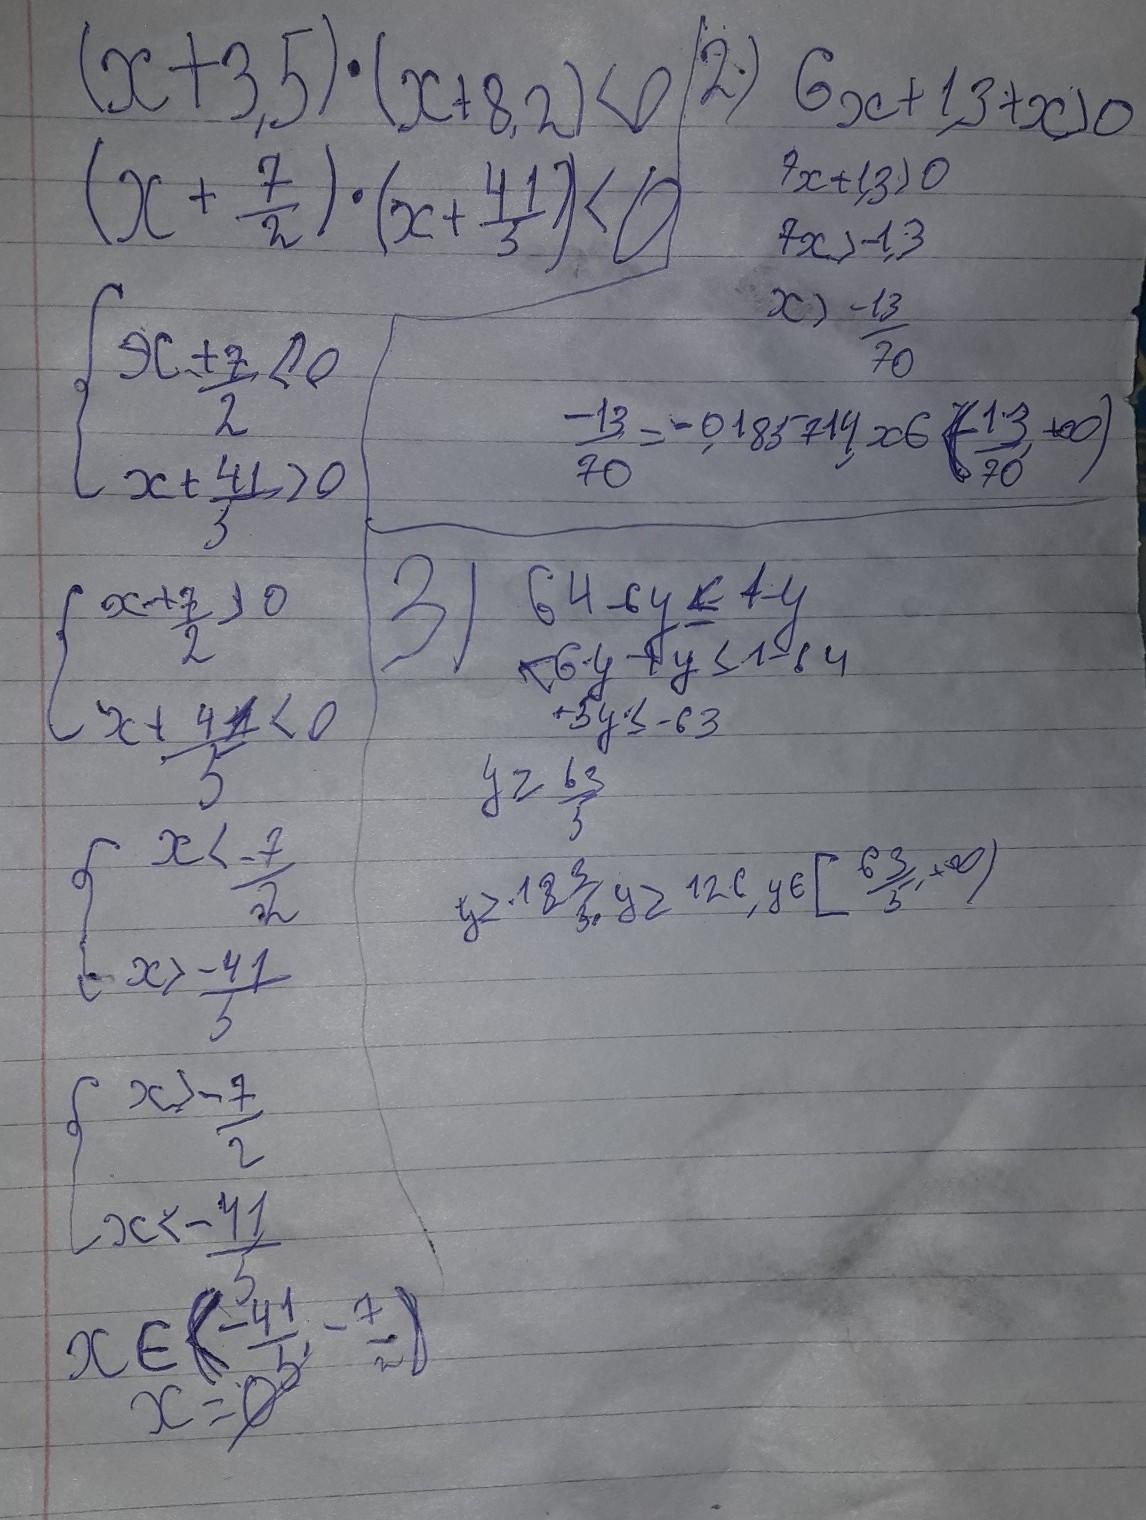 (x+3,5)·(x+8,2)<0
(x + 7/2)·(x + 41/5)<0
{ x + 7/2 < 0
x + 41/5 > 0
{ x + 7/2 > 0
x + 41/5 < 0
{ x < -7/2
x > -41/5
{ x > -7/2
x < -41/5
x ∈ (-41/5, -7/2)
x = ∅
2.) 6x+1,3+x>0
7x+1,3>0
7x>-1,3
x> -13/70
-13/70 = -0,185714, x є (-13/70, +∞)
3) 64-6y ≤ 1-y
-6y + y ≤ 1-64
-5y ≤ -63
y ≥ 63/5
y ≥ 12 3/5, y ≥ 12,6, y є [63/5, +∞)